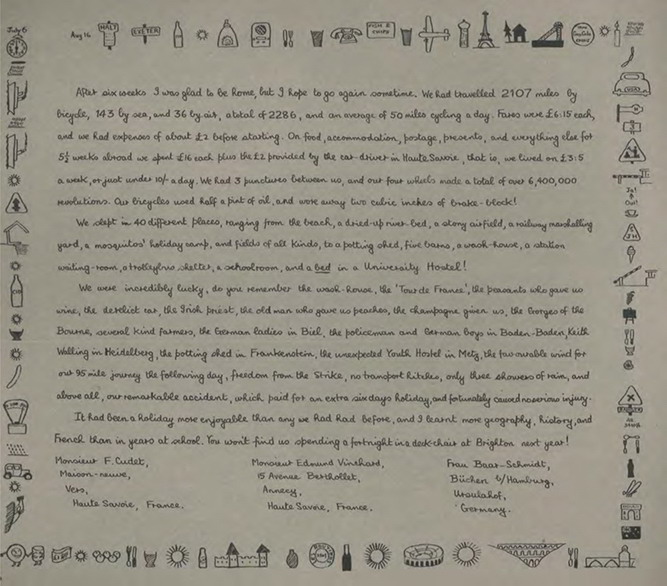 July 6
Aug 16
HALT
EXETER
FISH & CHIPS
After six weeks I was glad to be Home, but I hope to go again sometime. We had travelled 2107 miles by
bicycle, 143 by sea, and 36 by air, a total of 2286, and an average of 50 miles cycling a day. Fares were £6:15 each,
and we had expenses of about £2 before starting. On food, accommodation, postage, presents, and everything else for
5½ weeks abroad we spent £16 each plus the £2 provided by the car-driver in Haute Savoie, that is, we lived on £3:5
a week, or just under 10/- a day. We had 3 punctures between us, and our four wheels made a total of over 6,400,000
revolutions. Our bicycles used half a pint of oil, and wore away two cubic inches of brake-block!
We slept in 40 different places, ranging from the beach, a dried-up river-bed, a stony airfield, a railway marshalling
yard, a mosquitos' holiday camp, and fields of all kinds, to a potting shed, five barns, a wash-house, a station
waiting-room, a trolleybus shelter, a schoolroom, and a bed in a University Hostel!
We were incredibly lucky, do you remember the wash-house, the 'Tour de France', the peasants who gave us
wine, the derelict car, the Irish priest, the old man who gave us peaches, the champagne given us, the Gorges of the
Bourne, several kind farmers, the German ladies in Biel, the policeman and German boys in Baden-Baden, Keith
Walling in Heidelberg, the potting shed in Frankenstein, the unexpected Youth Hostel in Metz, the favourable wind for
our 95 mile journey the following day, freedom from the Strike, no transport hitches, only three showers of rain, and
above all, our remarkable accident, which paid for an extra six days holiday, and fortunately caused no serious injury.
It had been a holiday more enjoyable than any we had had before, and I learnt more geography, history, and
French than in years at school. You won't find us spending a fortnight in a deck-chair at Brighton next year!
Monsieur F. Cudet,
Maison-neuve,
Vers,
Haute Savoie, France.
Monsieur Edmund Vinshard,
15 Avenue Berthollet,
Annecy,
Haute Savoie, France.
Frau Baar-Schmidt,
Büchen b/Hamburg,
Ursulahof,
Germany.